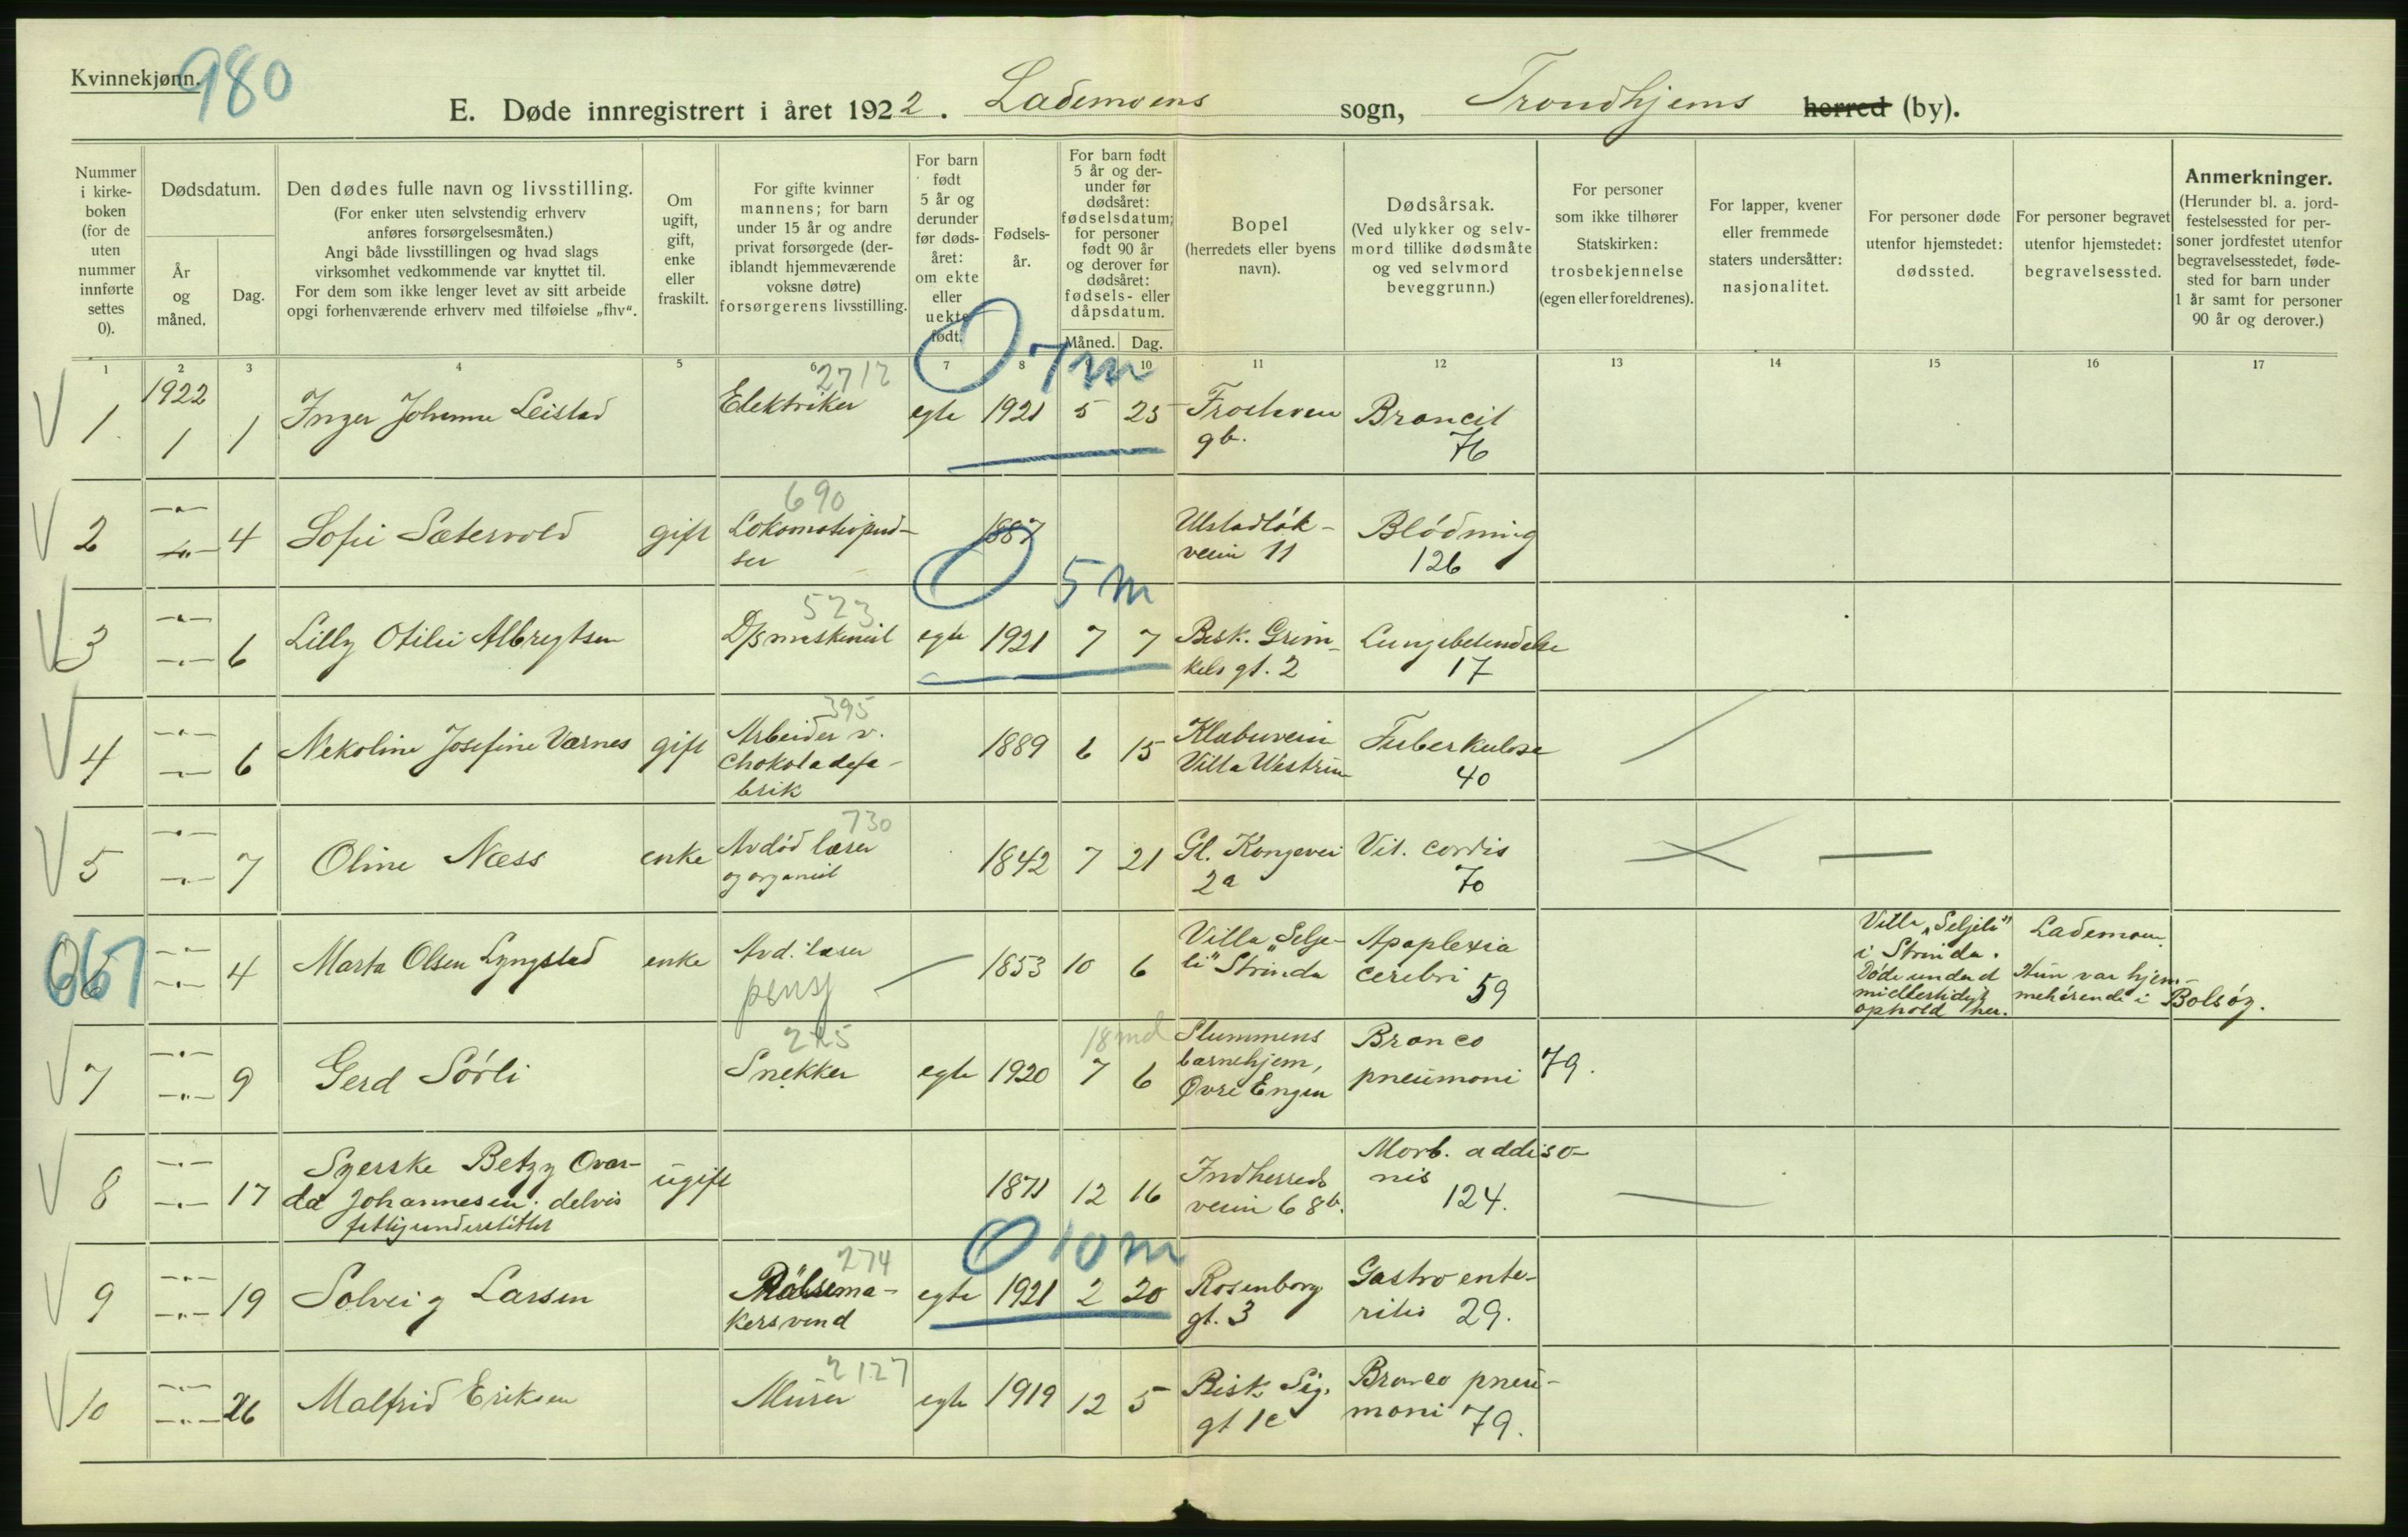 Kvinnekjønn.
980
E. Døde innregistrert i året 1922. Lademoens sogn, Trondhjems herred (by).
Nummer i kirke-boken (for de uten nummer innførte settes 0).
Dødsdatum.
År og måned.
Dag.
Den dødes fulle navn og livsstilling.
(For enker uten selvstendig erhverv anføres forsørgelsesmåten.)
Angi både livsstillingen og hvad slags virksomhet vedkommende var knyttet til.
For dem som ikke lenger levet av sitt arbeide opgi forhenværende erhverv med tilføielse „fhv“.
Om ugift, gift, enke eller fraskilt.
For gifte kvinner mannens; for barn under 15 år og andre privat forsørgede (der-iblandt hjemmeværende voksne døtre) forsørgerens livsstilling.
For barn født 5 år og derunder før døds-året: om ekte eller uekte født.
Fødsels-år.
For barn født 5 år og der-under før dødsåret: fødselsdatum; for personer født 90 år og derover før dødsåret: fødsels- eller dåpsdatum.
Måned.
Dag.
Bopel
(herredets eller byens navn).
Dødsårsak.
(Ved ulykker og selv-mord tillike dødsmåte og ved selvmord beveggrunn.)
For personer som ikke tilhører Statskirken: trosbekjennelse (egen eller foreldrenes).
For lapper, kvener eller fremmede staters undersåtter: nasjonalitet.
For personer døde utenfor hjemstedet: dødssted.
For personer begravet utenfor hjemstedet: begravelsessted.
Anmerkninger.
(Herunder bl. a. jord-festelsessted for per-soner jordfestet utenfor begravelsesstedet, føde-sted for barn under 1 år samt for personer 90 år og derover.)
1 2 3 4 5 6 7 8 9 10 11 12 13 14 15 16 17
1922 2712 0 7 m
1. 1 1 Inger Johanne Leistad Elektriker egte 1921 5 25 Frostaveien
9b. Broncit
76
690
2 4 Sofie Sætervold gift Lokomotivpud-
ser 1887 Ulstadløk-
veien 11 Blødning
126
523 0 5 m
3 6 Lilly Otilie Albregtsen D/s maskinist egte 1921 7 7 Bisk. Grim-
kels gt. 2 Lungebetendelse
17
395
4 6 Nekoline Josefine Værnes gift Arbeider v.
chokoladefa-
brik 1889 6 15 Klæbuveien
Villa Westrum Tuberkulose
40
730
5 7 Oline Næss enke Avdød lærer
og organist 1842 7 21 Gl. Kongevei
2a Vit. cordis
70
6 4 Marta Olsen Lyngstad enke Avd. lærer
pensj 1853 10 6 Villa „Selje-
li“ Strinda Apaplexia
cerebri 59 Villa „Seljeli“
i Strinda.
Døde under et
midlertidigt
ophold her. Lademoen.
Hun var hjem-
mehørende i Bolsøy.
275 18 md
7 9 Gerd Sørli Snekker egte 1920 7 6 Slummens
barnehjem,
Øvre Engen Bronco
pneumoni 79.
8 17 Syerske Betzy Ovar-
da Johannesen; delvis
fattigunderstøttet ugift 1871 12 16 Indherreds
veien 68b. Morb. addiso-
nis
124.
274 0 10 m
9 19 Solveig Larsen Pølsema-
kersvend egte 1921 2 20 Rosenborg
gt. 3 Gastro ente-
ritis 29.
2127
10 26 Malfrid Eriksen Murer egte 1919 12 5 Bisk. Sig.
gt 1c Bronco pneu-
moni 79.